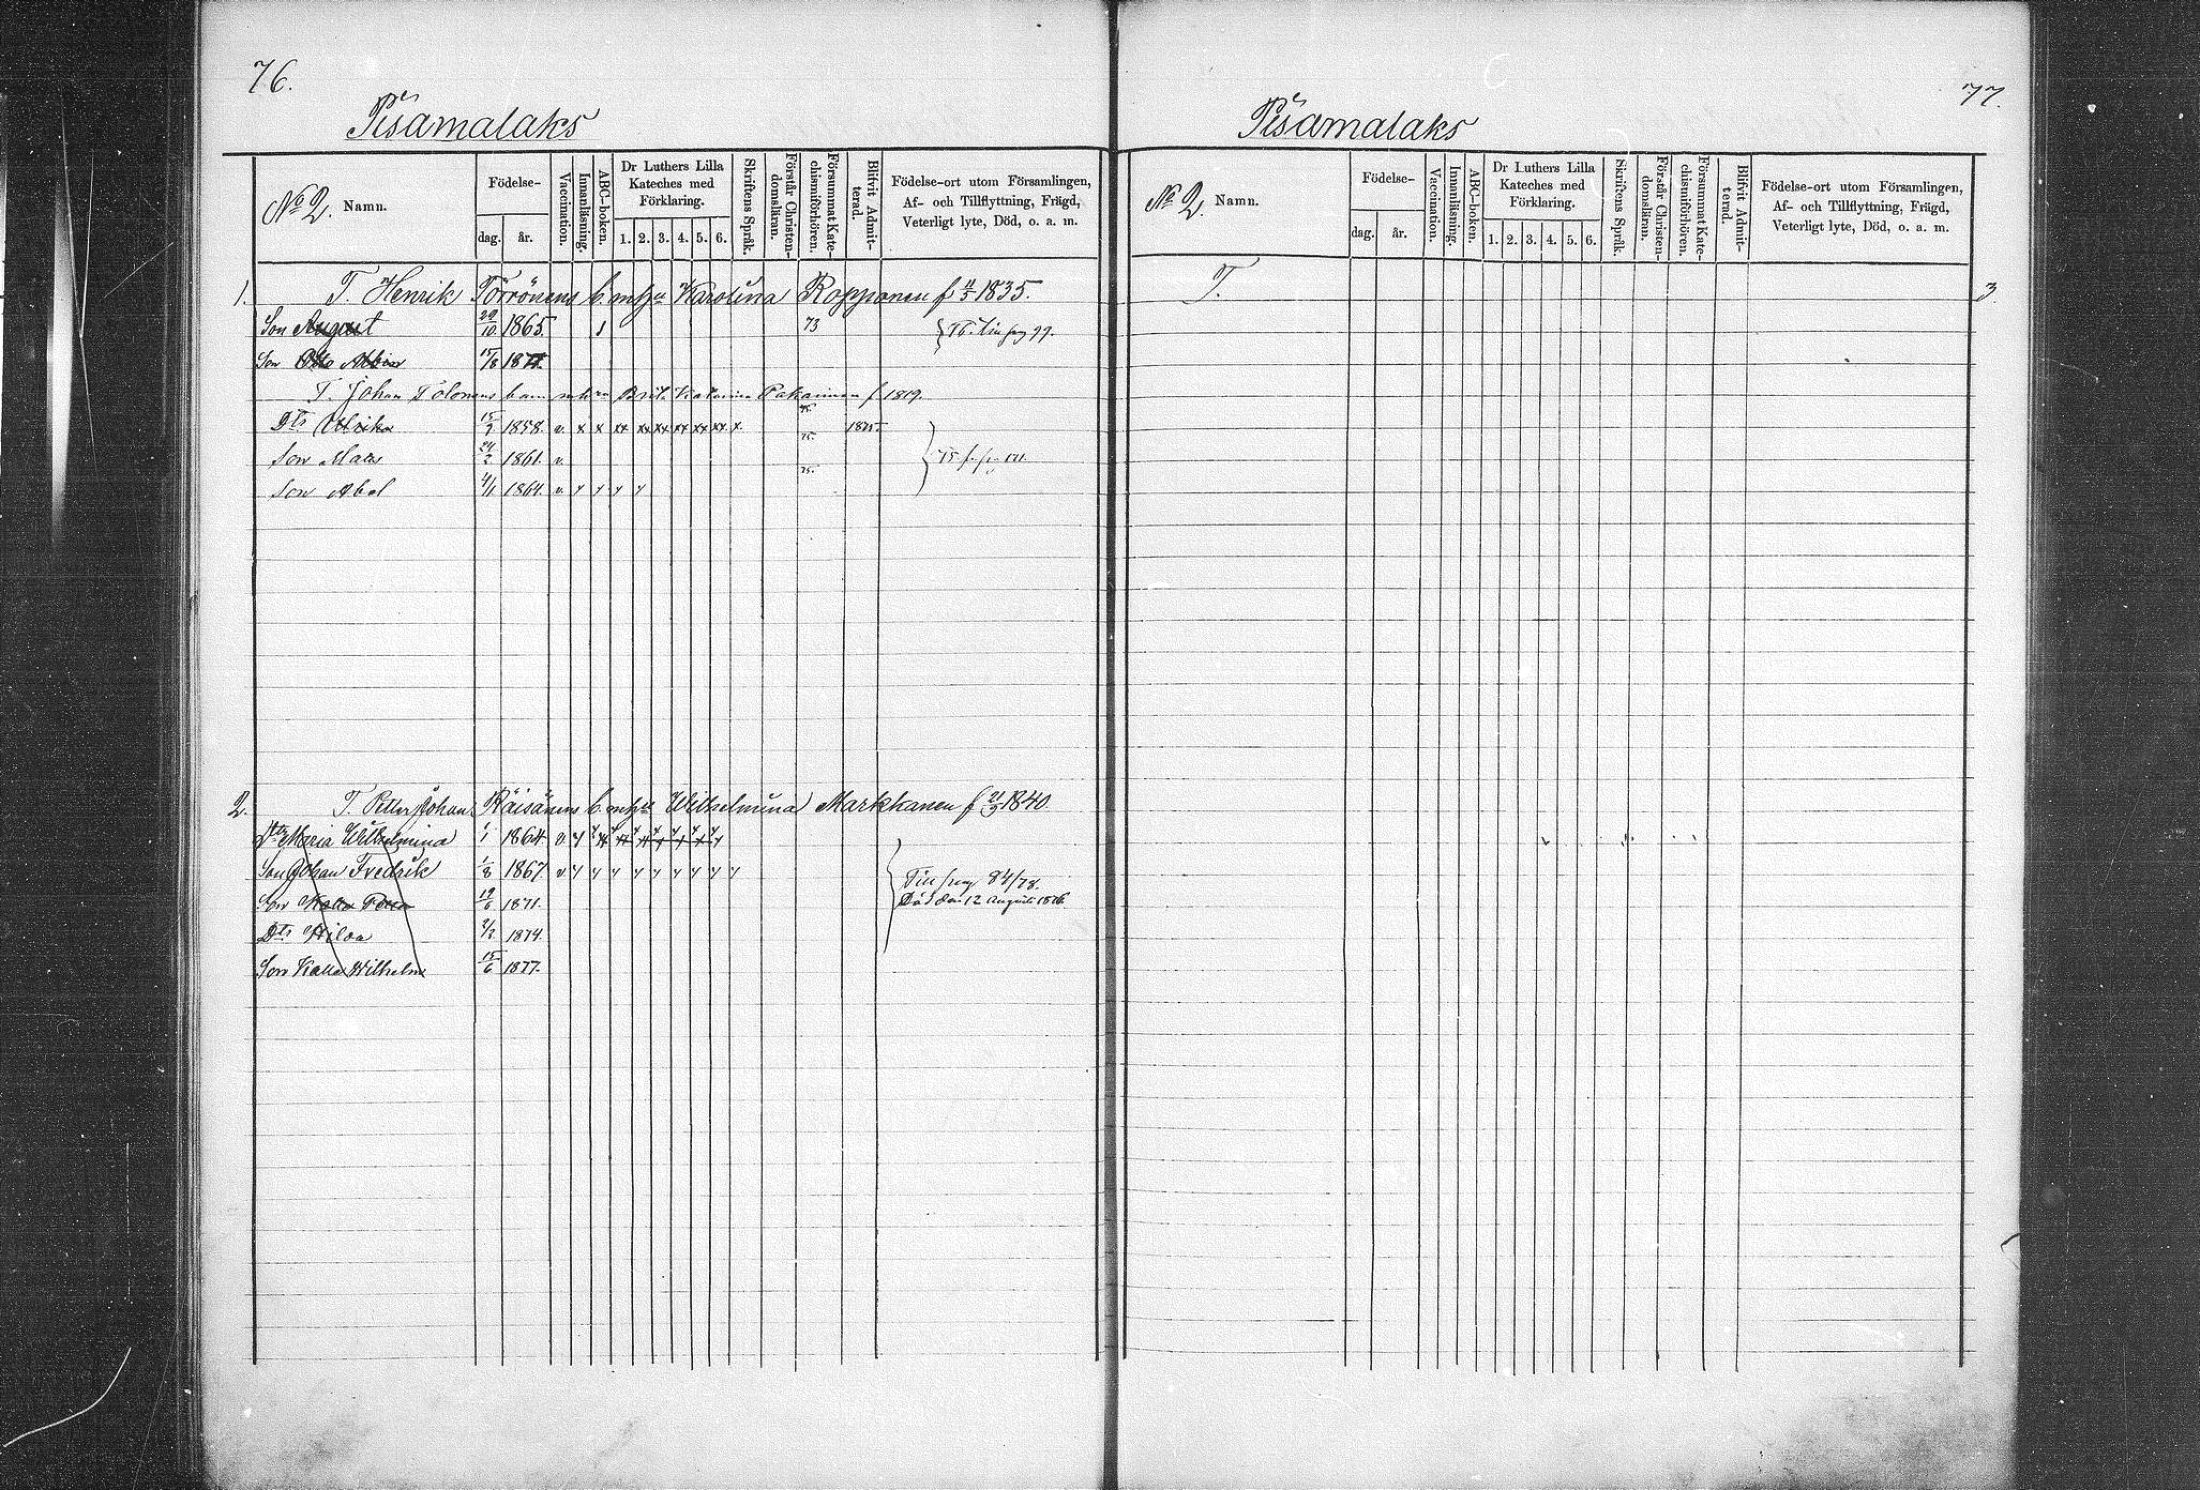 76.
Pisamalaks
No 2. Namn.
Födelse-
dag. år.
Vaccination.
Innanläsning.
ABC-boken.
Dr Luthers Lilla
Kateches med
Förklaring.
1. 2. 3. 4. 5. 6.
Skriftens Språk.
Förstår Christen-
domsläran.
Försummat Kate-
chismiförhören.
Blifvit Admit-
terad.
Födelse-ort utom Församlingen,
Af- och Tillflyttning, Frägd,
Veterligt lyte, Död, o. a. m.
1. T. Henrik Törrönens b. m hu Karolina Ropponen f 11/5 1835.
Son August 29/10 1865. 1 73
Son Otto Albin 15/8 1871.
T. Johan Tolonens barn m hu Brita Katarina Pakarinen f 1819.
75.
Dtr Ulrika 15/7 1858. v. x x xx xx xx xx xx xx x. 1875.
75.
Son Mats 24/2 1861. v.
75.
Son Abel 4/1 1864. v. y y y y
2. T. Petter Johan Räisänens b. m hu Wilhelmina Markkanen f 21/9 1840.
Dtr Maria Wilhelmina 1/1 1864. v y
Son Johan Fredrik 1/8 1867 v y y y y y y y y y
Son Kalle 19/6 1871.
Till pag 84/78.
Död den 12 Augusti 1876.
Dtr Hilda 2/3 1874.
Son Kalle Wilhelm 15/6 1877.
77.
Pisamalaks
No 2. Namn.
Födelse-
dag. år.
Vaccination.
Innanläsning.
ABC-boken.
Dr Luthers Lilla
Kateches med
Förklaring.
1. 2. 3. 4. 5. 6.
Skriftens Språk.
Förstår Christen-
domsläran.
Försummat Kate-
chismiförhören.
Blifvit Admit-
terad.
Födelse-ort utom Församlingen,
Af- och Tillflyttning, Frägd,
Veterligt lyte, Död, o. a. m.
T. 3